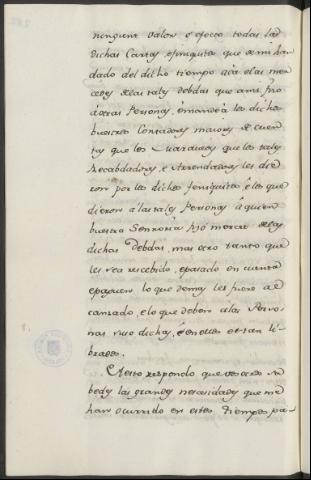 ningunt valor e efecto todas las
dichas Cartas, e finiquitos que se an
dado del dicho tiempo acá e las mer
cedes de las tales debdas que a mi, o
á otras Personas, é mande á los dichos
vuestros Contadores maiores de cuen
tas que los Maravedis que los tales
Recabdadores, e Arrendadores les die
ron por los dichos finiquitos, e los que
dieron á las tales Personas á quien
vuestra Señoria fizo merced de las
dichas Debdas, mas otro tanto que
les sea recebido, e pasado en cuenta
e paguen lo que demas les fuere al
canzado, e lo que deben a las Perso
nas suso dichas, e en ellos estan li
brados.
A esto respondo que vosotros sa
bedes las grandes necesidades que me
han ocurrido en estos Tiempos pa-